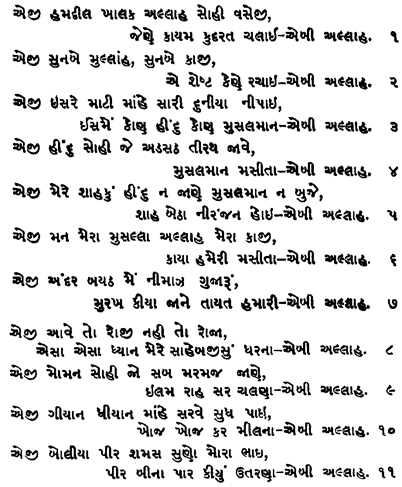 એજી હમદીલ ખાલક અલ્લાહ સોહી વસેજી,
જેણે કાયમ કુદરત ચલાઇ–એબી અલ્લાહ. ૧
એજી સુનબે મુલ્લાંહ, સુનબે કાજી,
એ શેષ્ટ કેણે રચાઇ–એબી અલ્લાહ. ૨
એજી ઇસરે માટી માંહે સારી દુનીયા નીપાઇ,
ઈસમેં કોણ હીંદુ કોણ મુસલમાન–એબી અલ્લાહ. ૩
એજી હીંદુ સોહી જે અડસઠ તીરથ જાવે,
મુસલમાન મસીતા–એબી અલ્લાહ. ૪
એજી મેરે શાહકું હીંદુ ન જાણે મુસલમાન ન બુજે,
શાહ બેઠા નીરંજન હોઇ–એબી અલ્લાહ. ૫
એજી મન મેરા મુસલ્લા અલ્લાહ મેરા કાજી,
કાયા હમેરી મસીતા–એબી અલ્લાહ. ૬
એજી અંદર બયઠ મેં નીમાઝ ગુજારૂં,
મુરખ કીયા જાને તાયત હમારી–એબી અલ્લાહ. ૭
એજી આવે તો રોજી નહી તો રોજા,
એસા એસા ધ્યાન મેરે સાહેબજીસું ધરના–એબી અલ્લાહ. ૮
એજી મોમન સોહી જો સબ મરમજ જાણે,
ઇલમ રાહ સર ચલણા–એબી અલ્લાહ. ૯
એજી ગીયાન ધીયાન માંહે સરવે સુધ પાઇ,
ખોજ ખોજ કર મીલના–એબી અલ્લાહ. ૧૦
એજી બોલીયા પીર શમસ સુણો મોરા ભાઇ,
પીર બીના પાર કીયું ઉતરણા–એબી અલ્લાહ. ૧૧